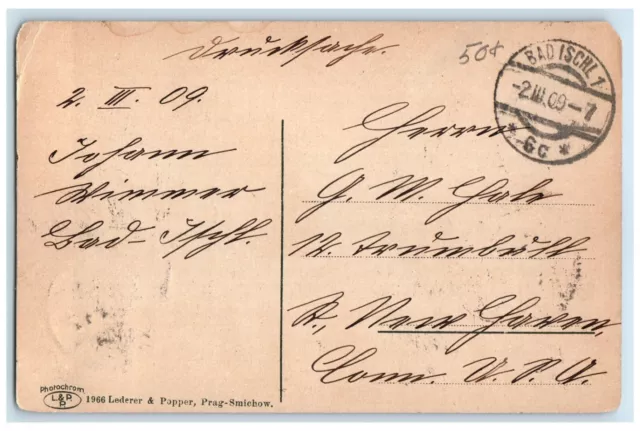 Drucksache.
50¢
BAD ISCHL 1
-2.III.09-7
* 6c *
2. III. 09.
Johann
Wimmer
Bad-Ischl.
Herrn
G. W. Hale
12. Trumbull
St., New Haven,
Conn. U. S. A.
Photochrom
L&P.
P.
1966 Lederer & Popper, Prag-Smichow.